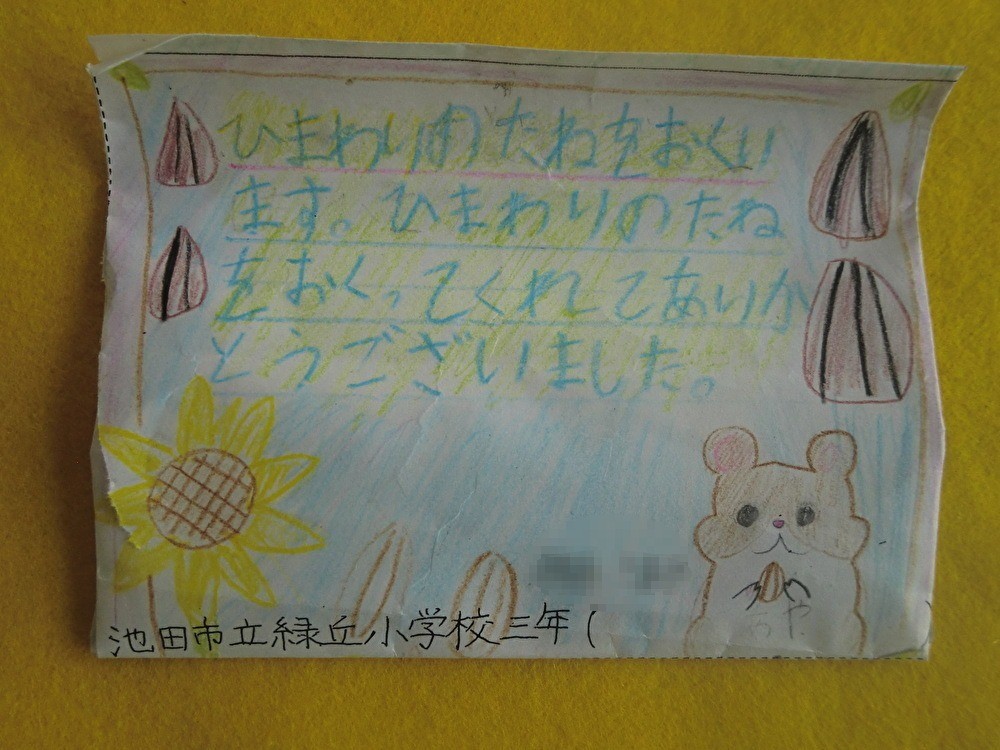 ひまわりのたねをおくり
ます。ひまわりのたね
をおくってくれてありが
とうございました。
池田市立緑丘小学校三年(